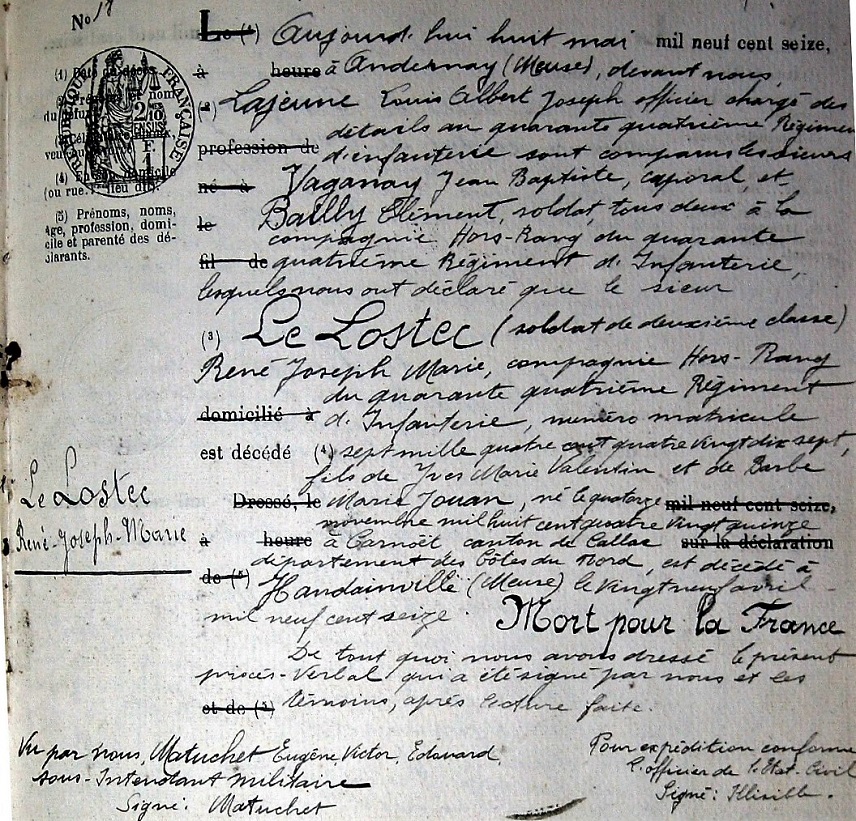 No 18
L̶e̶ ̶(̶1̶)̶ Aujourd'hui huit mai mil neuf cent seize,
à heure à Andernay (Meuse), devant nous,
(2) Lajeune Louis Albert Joseph officier chargé des
détails au quarante quatrième Régiment
profession de d'infanterie sont comparus les sieurs
né à Vaganay Jean Baptiste, caporal, et
le Bailly Clément, soldat, tous deux à la
compagnie Hors-Rang du quarante
fil de quatrième Régiment d'Infanterie,
lesquels nous ont déclaré que le sieur
(3) Le Lostec (soldat de deuxième classe)
René Joseph Marie, compagnie Hors-Rang
du quarante quatrième Régiment
domicilié à d'Infanterie, numéro matricule
est décédé (4) sept mille quatre cent quatre vingt dix sept,
fils de Yves Marie Valentin et de Barbe
Dressé, le Marie Jouan, né le quatorze mil neuf cent seize,
novembre mil huit cent quatre vingt quinze
à heure à Carnoët canton de Callac sur la déclaration
département des Côtes du Nord, est décédé à
de (5) Haudainville (Meuse) le vingt neuf avril
mil neuf cent seize. Mort pour la France
De tout quoi nous avons dressé le présent
procès-Verbal qui a été signé par nous et les
et de (5) témoins, après lecture faite.
RÉPUBLIQUE FRANÇAISE
(1) Date du décès.
(4)
(ou rue.) lieu dit).
(5) Prénoms, noms,
âge, profession, domi-
cile et parenté des dé-
clarants.
Le Lostec
René-Joseph-Marie
Vu par nous, Matuchet Eugène, Victor, Edouard,
sous-Intendant militaire
Signé: Matuchet
Pour expédition conforme
l'officier de l'Etat-Civil
Signé: Illisible.